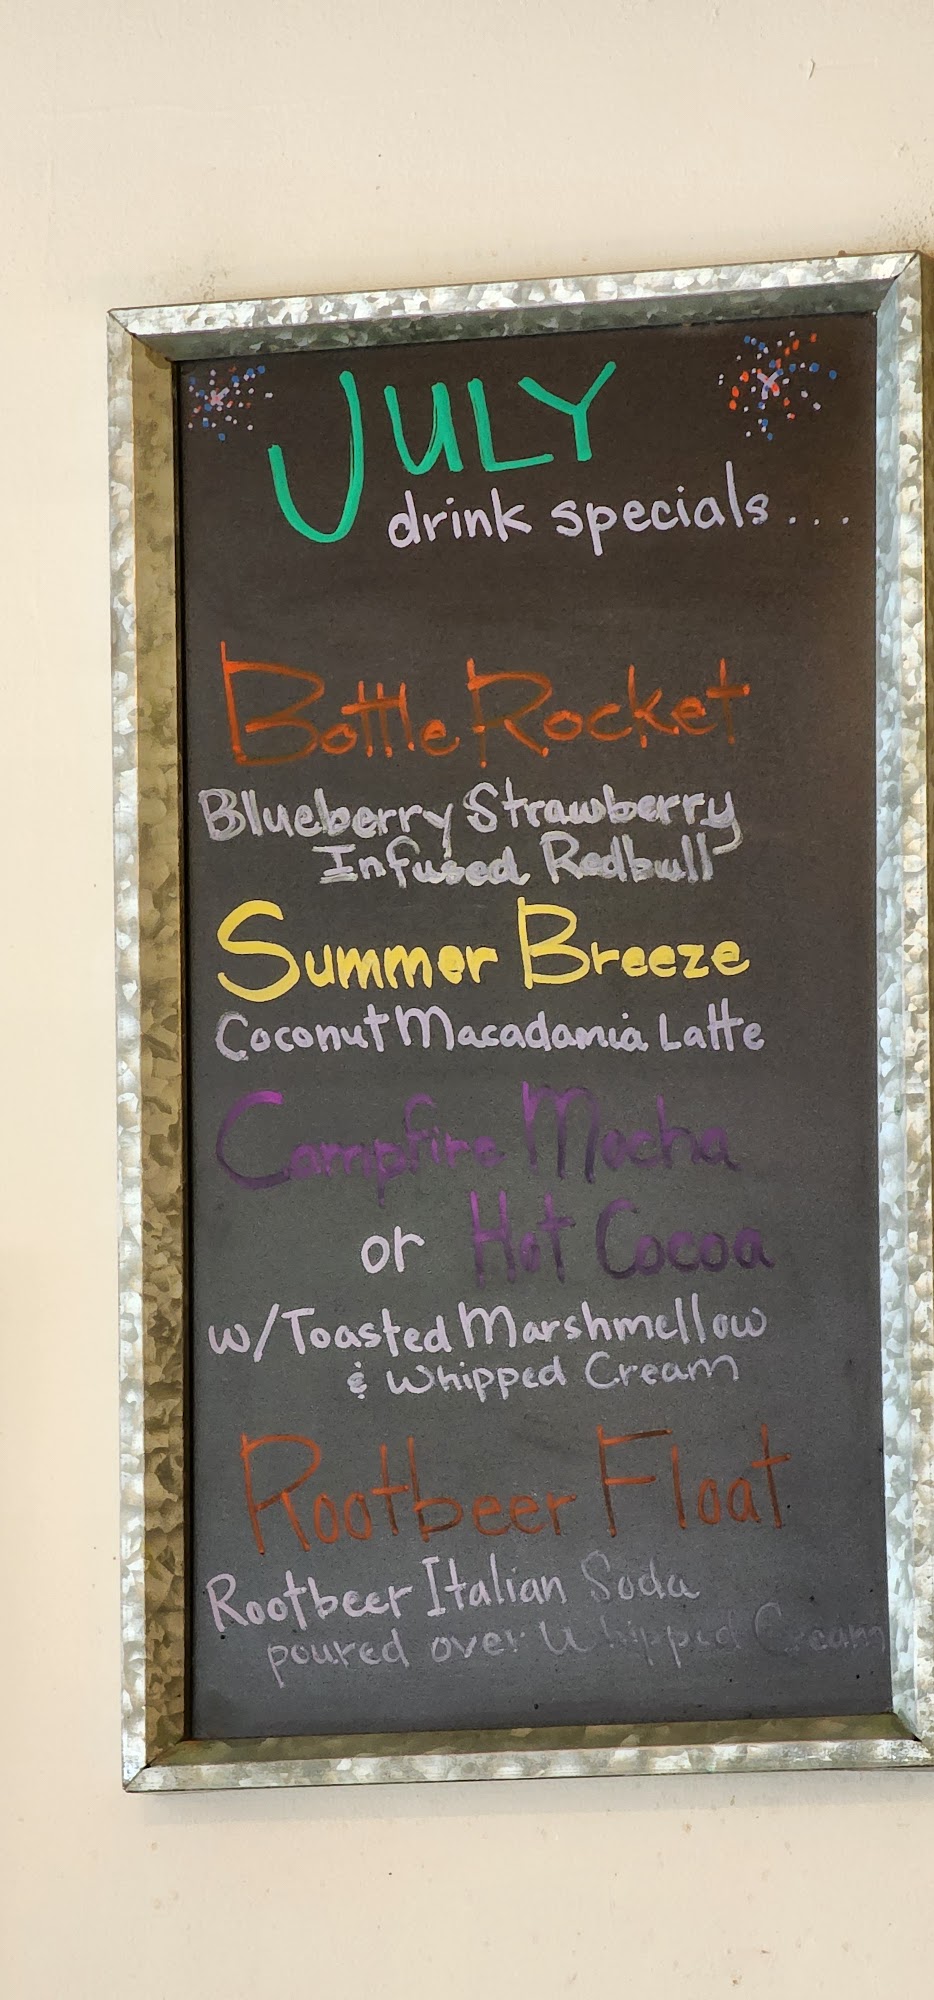 JULY
drink specials...
Bottle Rocket
Blueberry Strawberry
Infused Redbull
Summer Breeze
Coconut Macadamia Latte
Campfire Mocha
or Hot Cocoa
w/Toasted Marshmellow
& Whipped Cream
Rootbeer Float
Rootbeer Italian Soda
poured over Whipped Cream